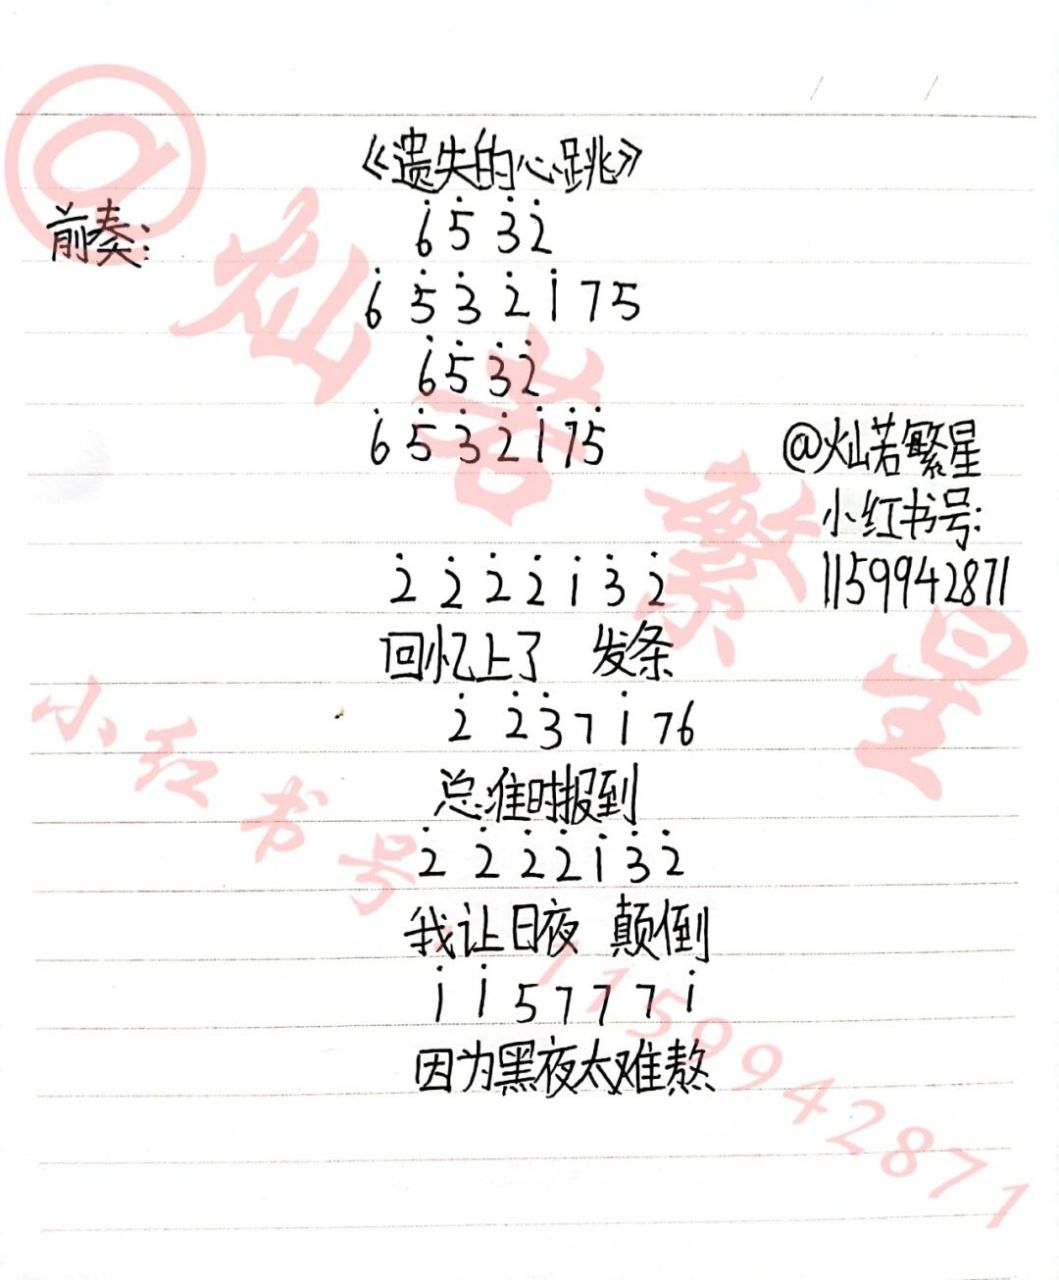 《遗失的心跳》
前奏:
6̇ 5̇ 3̇ 2̇
6̇ 5̇ 3̇ 2̇ 1̇ 7 5
6̇ 5̇ 3̇ 2̇
6̇ 5̇ 3̇ 2̇ 1̇ 7̇ 5̇
@灿若繁星
小红书号:
1159942871
2̇ 2̇ 2̇ 2̇ 1̇ 3̇ 2̇
回忆上了 发条
2̇ 2̇ 3̇ 7 1̇ 7 6
总准时报到
2̇ 2̇ 2̇ 2̇ 1̇ 3̇ 2̇
我让日夜 颠倒
1̇ 1̇ 5 7 7 7 1̇
因为黑夜太难熬
@灿若繁星
小红书号:1159942871